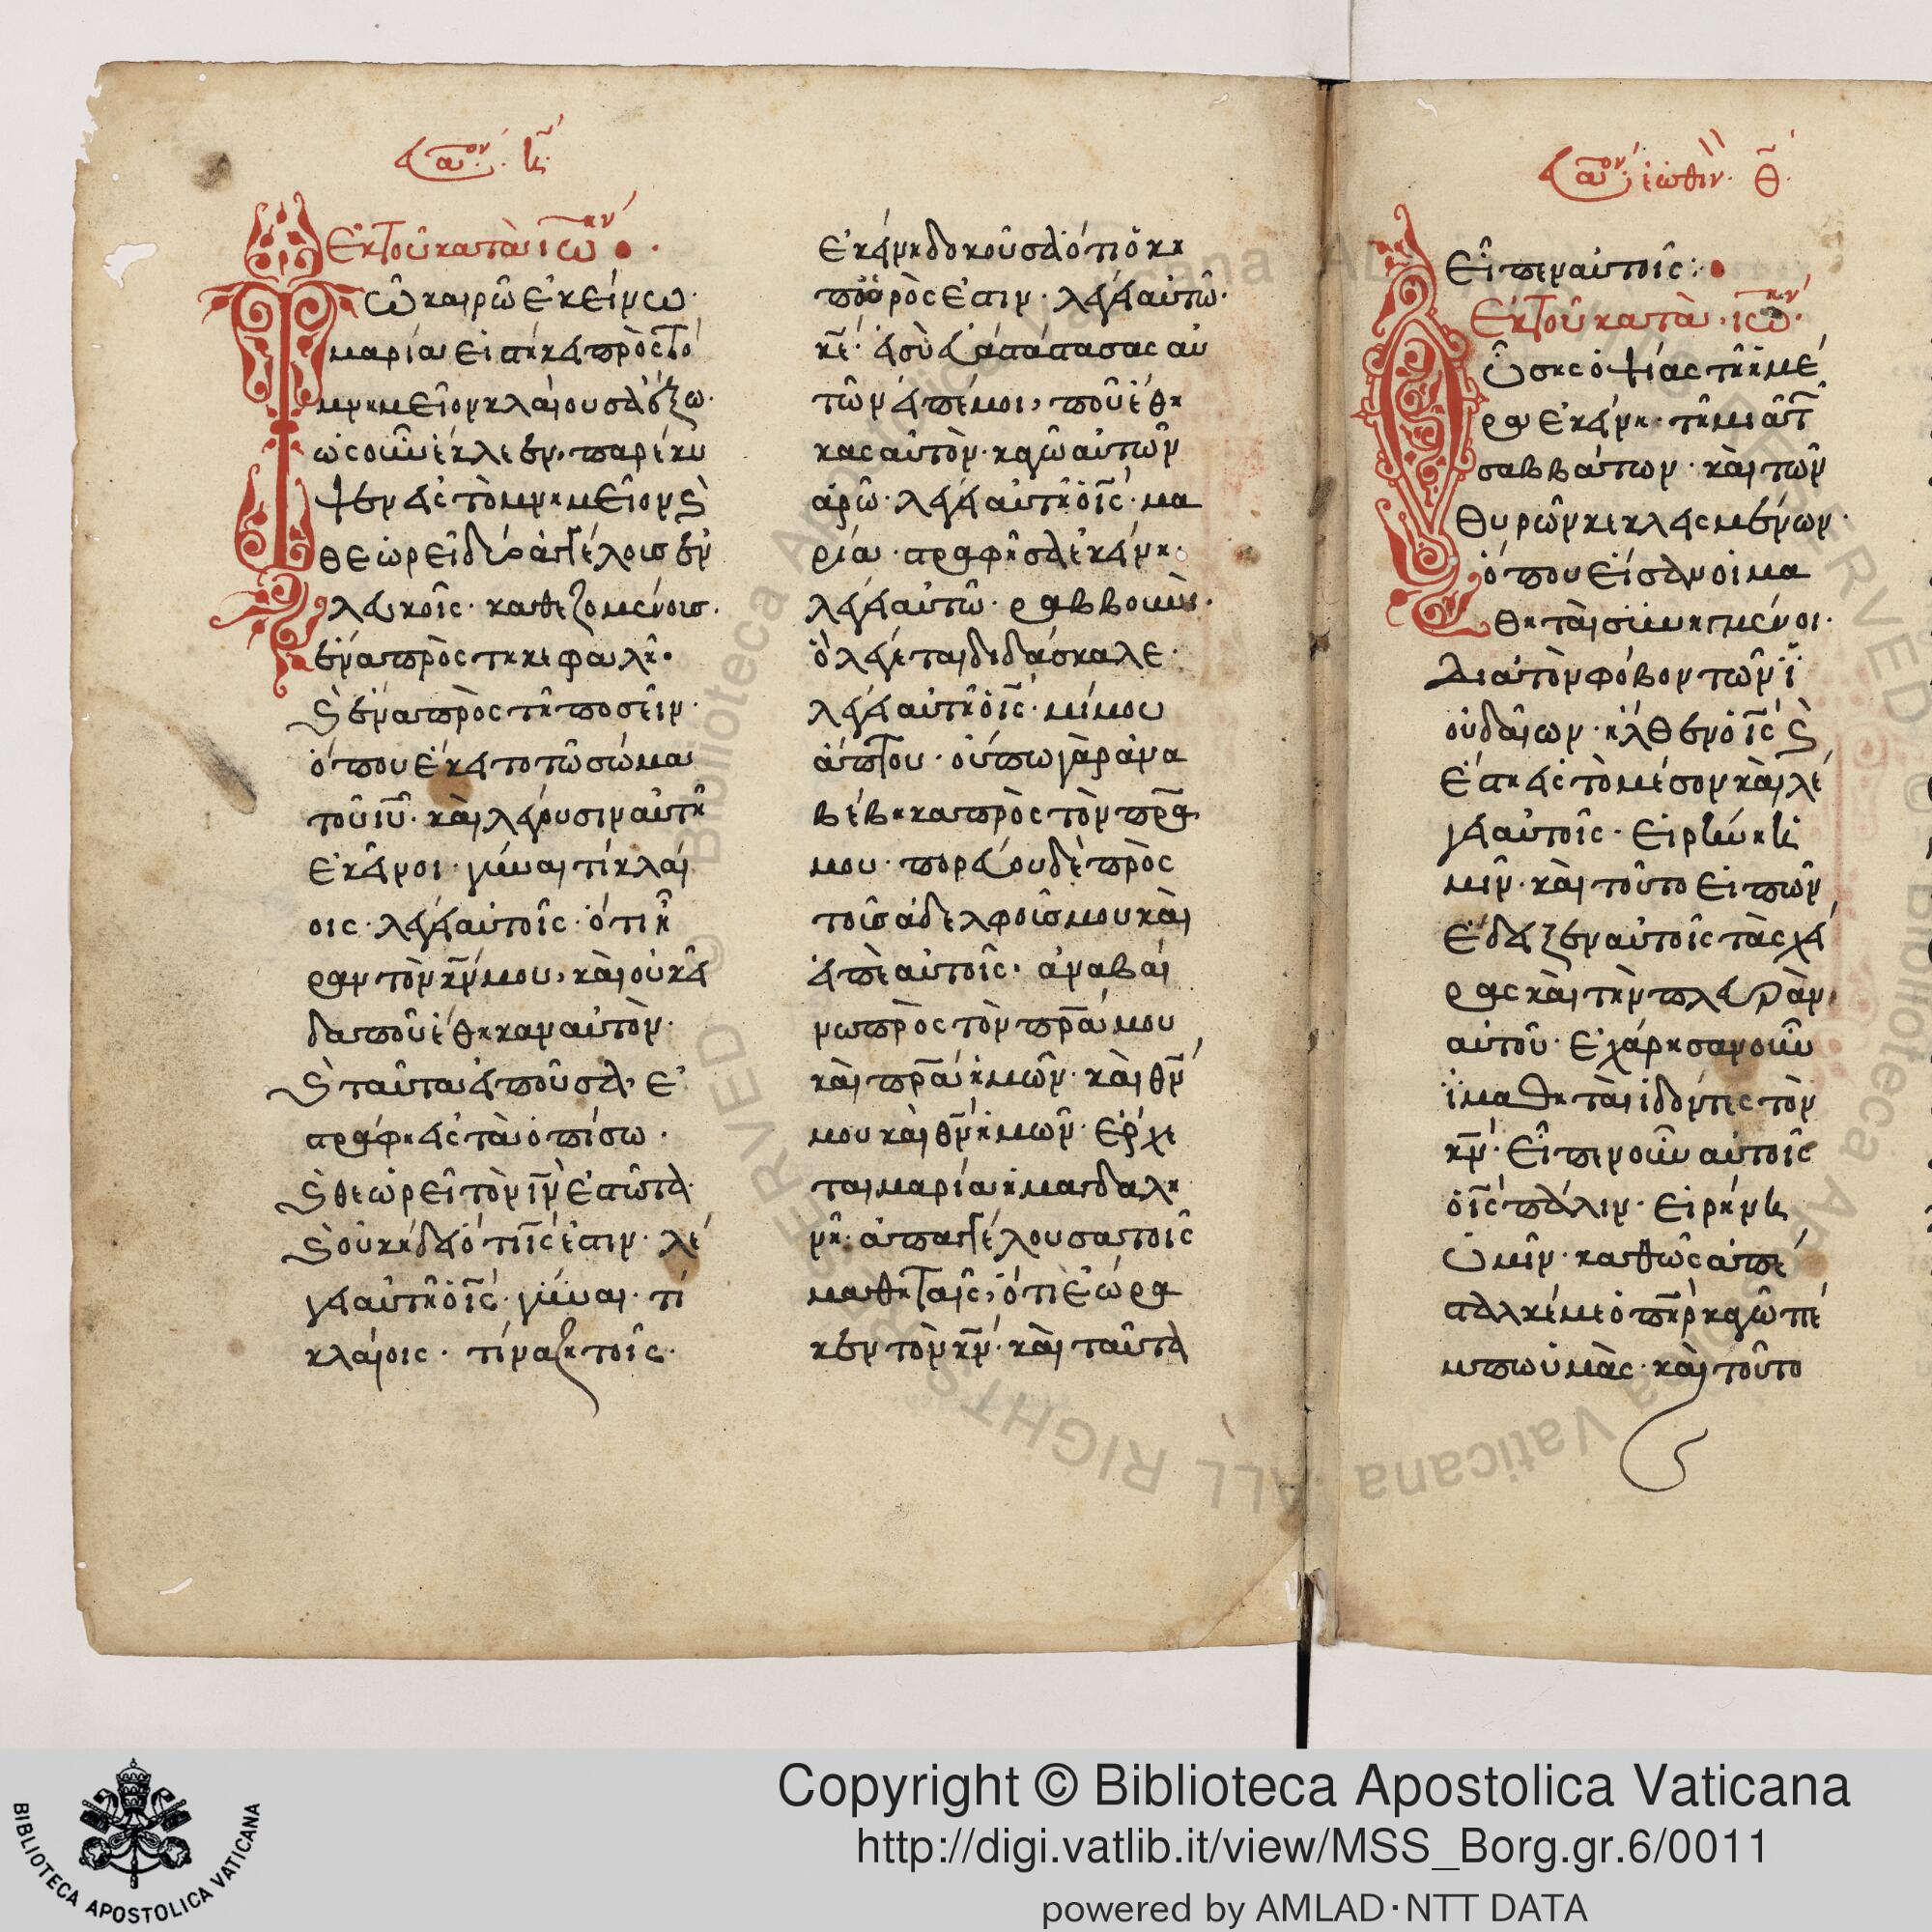 εὐα(γγέλι)ον. η̃
Ἐκ τοῦ κατὰ ἰω(άννην).
Τῶ καιρῶ ἐκείνω·
μαρία εἱστήκει πρὸς τὸ
μνημεῖον κλαίουσα ἔξω·
ὡς οὖν ἔκλαιεν, παρέκυ
ψεν εἰς τὸ μνημεῖον (καὶ)
θεωρεῖ δύο ἀγγέλοις ἐν
λευκοῖς· καθεζομένοις·
ἕνα πρὸς τῆ κεφαλῆ·
(καὶ) ἕνα πρὸς τῆ ποσεῖν·
ὅπου ἔκειτο τῶ σώμα
τοῦ ιῦ· καὶ λέγουσιν αὐτῆ
ἐκεῖνοι· γύναι τί κλαί
οις· λέγει αὐτοῖς· ὅτι ἦ
ραν τὸν κν̄ μου, καὶ οὐκ εἶ
δα ποῦ ἔθηκαν αὐτόν·
(καὶ) ταῦτα εἰποῦσα, ἐ
στράφη εἰς τὰ ὀπίσω·
(καὶ) θεωρεῖ τὸν ιν̄ ἐστῶτα·
(καὶ) οὐκ ἤδει ὅτι ις̄ ἐστιν· λέ
γει αὐτῆ ὁ ις̄· γύναι· τί
κλαίοις· τίνα ζητοῖς·
ἐκείνη δοκοῦσα ὅτι ὁ κη
πουρός ἐστιν· λέγει αὐτῶ·
κε̄· εἰ σὺ ἐβάστασας αυ
τῶν εἰπέ μοι, ποῦ ἔθη
κας αὐτὸν· καγῶ αὐτῶν
ἀρῶ· λέγει αὐτῆ ὁ ις̄· μα
ρία· στραφῆσα ἐκείνη·
λέγει αὐτῶ· ραββουνὶ·
ὃ λέγεται διδάσκαλε·
λέγει αὐτῆ ὁ ις̄· μί μου
ἅπτου· οὔπω γὰρ ἀνα
βέβηκα πρὸς τὸν πρ̄α
μου· πορεύου δὲ πρὸς
τοῖς ἀδελφοῖς μου καὶ
εἰπὲ αὐτοῖς· ἀναβαί
νω πρὸς τὸν πρ̄α μου
καὶ πρ̄α ἡμῶν· καὶ θν̄
μου καὶ θν̄ ἡμῶν· ἔρχε
ται μαρία ἡ μαγδαλη
νῆ· ἀπαγγέλουσα τοῖς
μαθηταῖς, ὅτι ἐώρα
κεν τὸν κν̄· καὶ ταῦτα
εὐα(γγέλι)ον ἑωθιν(ὸν). θ̃
εἶπεν αὐτοῖς:
Ἐκ τοῦ κατὰ ἰω(άννην).
Οὔσης ὀψίας τῆ ἡμέ
ρα ἐκείνη· τῆ μιᾶ τ(ῶν)
σαββάτων· καὶ τῶν
θυρῶν κεκλεισμένων·
ὅπου εἴσαν οἱ μα
θηταὶ συνηγμένοι·
διὰ τὸν φόβον τῶν ἰ
ουδαίων· ἦλθεν ὁ ις̄ (καὶ)
ἔστη εἰς τὸ μέσον καὶ λέ
γει αὐτοῖς· εἰρήνη ὑ
μῖν· καὶ τοῦτο εἰπῶν
ἔδειξεν αὐτοῖς τὰς χεῖ
ρας καὶ τὴν πλευρὰν
αὐτοῦ· ἐχάρησαν οὖν
ἱ μαθηταὶ ἰδόντες τὸν
κν̄· εἶπεν οὖν αὐτοῖς
ὁ ις̄ πάλιν· εἰρήνη
ὑμῖν· καθῶς ἀπέ
σταλκέ με ὁ πηρ̄ καγῶ πέ
μπω ὑμὰς· καὶ τοῦτο
BIBLIOTECA APOSTOLICA VATICANA
Copyright © Biblioteca Apostolica Vaticana
http://digi.vatlib.it/view/MSS_Borg.gr.6/0011
powered by AMLAD·NTT DATA